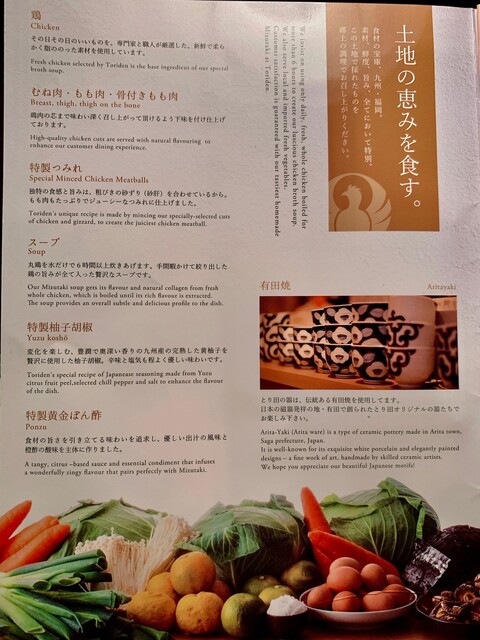 土地の恵みを食す。
食材の宝庫、九州・福岡。
素材、鮮度、旨み、全てにおいて特別。
この土地で採れたものを
郷土の調理でお召し上がりください。
We insist on using only daily, fresh, whole chicken boiled for
more than 6 hours to create our luscious chicken broth soup.
We also serve local and imported fresh vegetables.
Customer satisfaction is guaranteed with our tastiest homemade
Mizutaki at Toriden.
鶏
Chicken
その日その日のいいものを、専門家と職人が厳選した、新鮮で柔ら
かく脂ののった素材を使用しています。
Fresh chicken selected by Toriden is the base ingredient of our special
broth soup.
むね肉・もも肉・骨付きもも肉
Breast, thigh, thigh on the bone
鶏肉の芯まで味わい深く召し上がって頂けるよう下味を付け仕上げ
ております。
High-quality chicken cuts are served with natural flavouring to
enhance our customer dining experience.
特製つみれ
Special Minced Chicken Meatballs
独特の食感と旨みは、粗びきの砂ずり（砂肝）を合わせているから。
もも肉もたっぷりでジューシーなつみれに仕上げました。
Toriden's unique recipe is made by mincing our specially-selected cuts
of chicken and gizzard, to create the juiciest chicken meatball.
スープ
Soup
丸鶏を水だけで６時間以上炊きあげます。手間暇かけて絞り出した
鶏の旨みが全て入った贅沢なスープです。
Our Mizutaki soup gets its flavour and natural collagen from fresh
whole chicken, which is boiled until its rich flavour is extracted.
The soup provides an overall subtle and delicious profile to the dish.
特製柚子胡椒
Yuzu koshō
変化を楽しむ、豊潤で奥深い香りの九州産の完熟した黄柚子を
贅沢に使用した柚子胡椒。辛味と塩気も程よく優しい味わいです。
Toriden's special recipe of Japanease seasoning made from Yuzu
citrus fruit peel,selected chill pepper and salt to enhance the flavour
of the dish.
特製黄金ぽん酢
Ponzu
食材の旨さを引き立てる味わいを追求し、優しい出汁の風味と
橙酢の酸味を主体に作りました。
A tangy, citrus –based sauce and essential condiment that infuses
a wonderfully zingy flavour that pairs perfectly with Mizutaki.
有田焼
Aritayaki
とり田の器は、伝統ある有田焼を使用してます。
日本の磁器発祥の地・有田で創られたとり田オリジナルの器たちで
お楽しみ下さい。
Arita-Yaki (Arita ware) is a type of ceramic pottery made in Arita town,
Saga prefecture, Japan.
It is well-known for its exquisite white porcelain and elegantly painted
designs – a fine work of art, handmade by skilled ceramic artists.
We hope you appreciate our beautiful Japanese motifs!